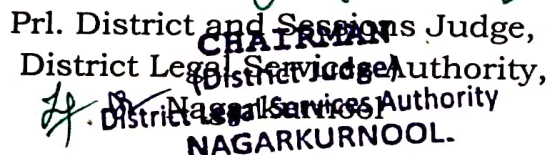 Prl. District and Sessions Judge,
CHAIRMAN
District Legal Services Authority,
(District Judge)
Nagarkurnool
District Legal Services Authority
NAGARKURNOOL.